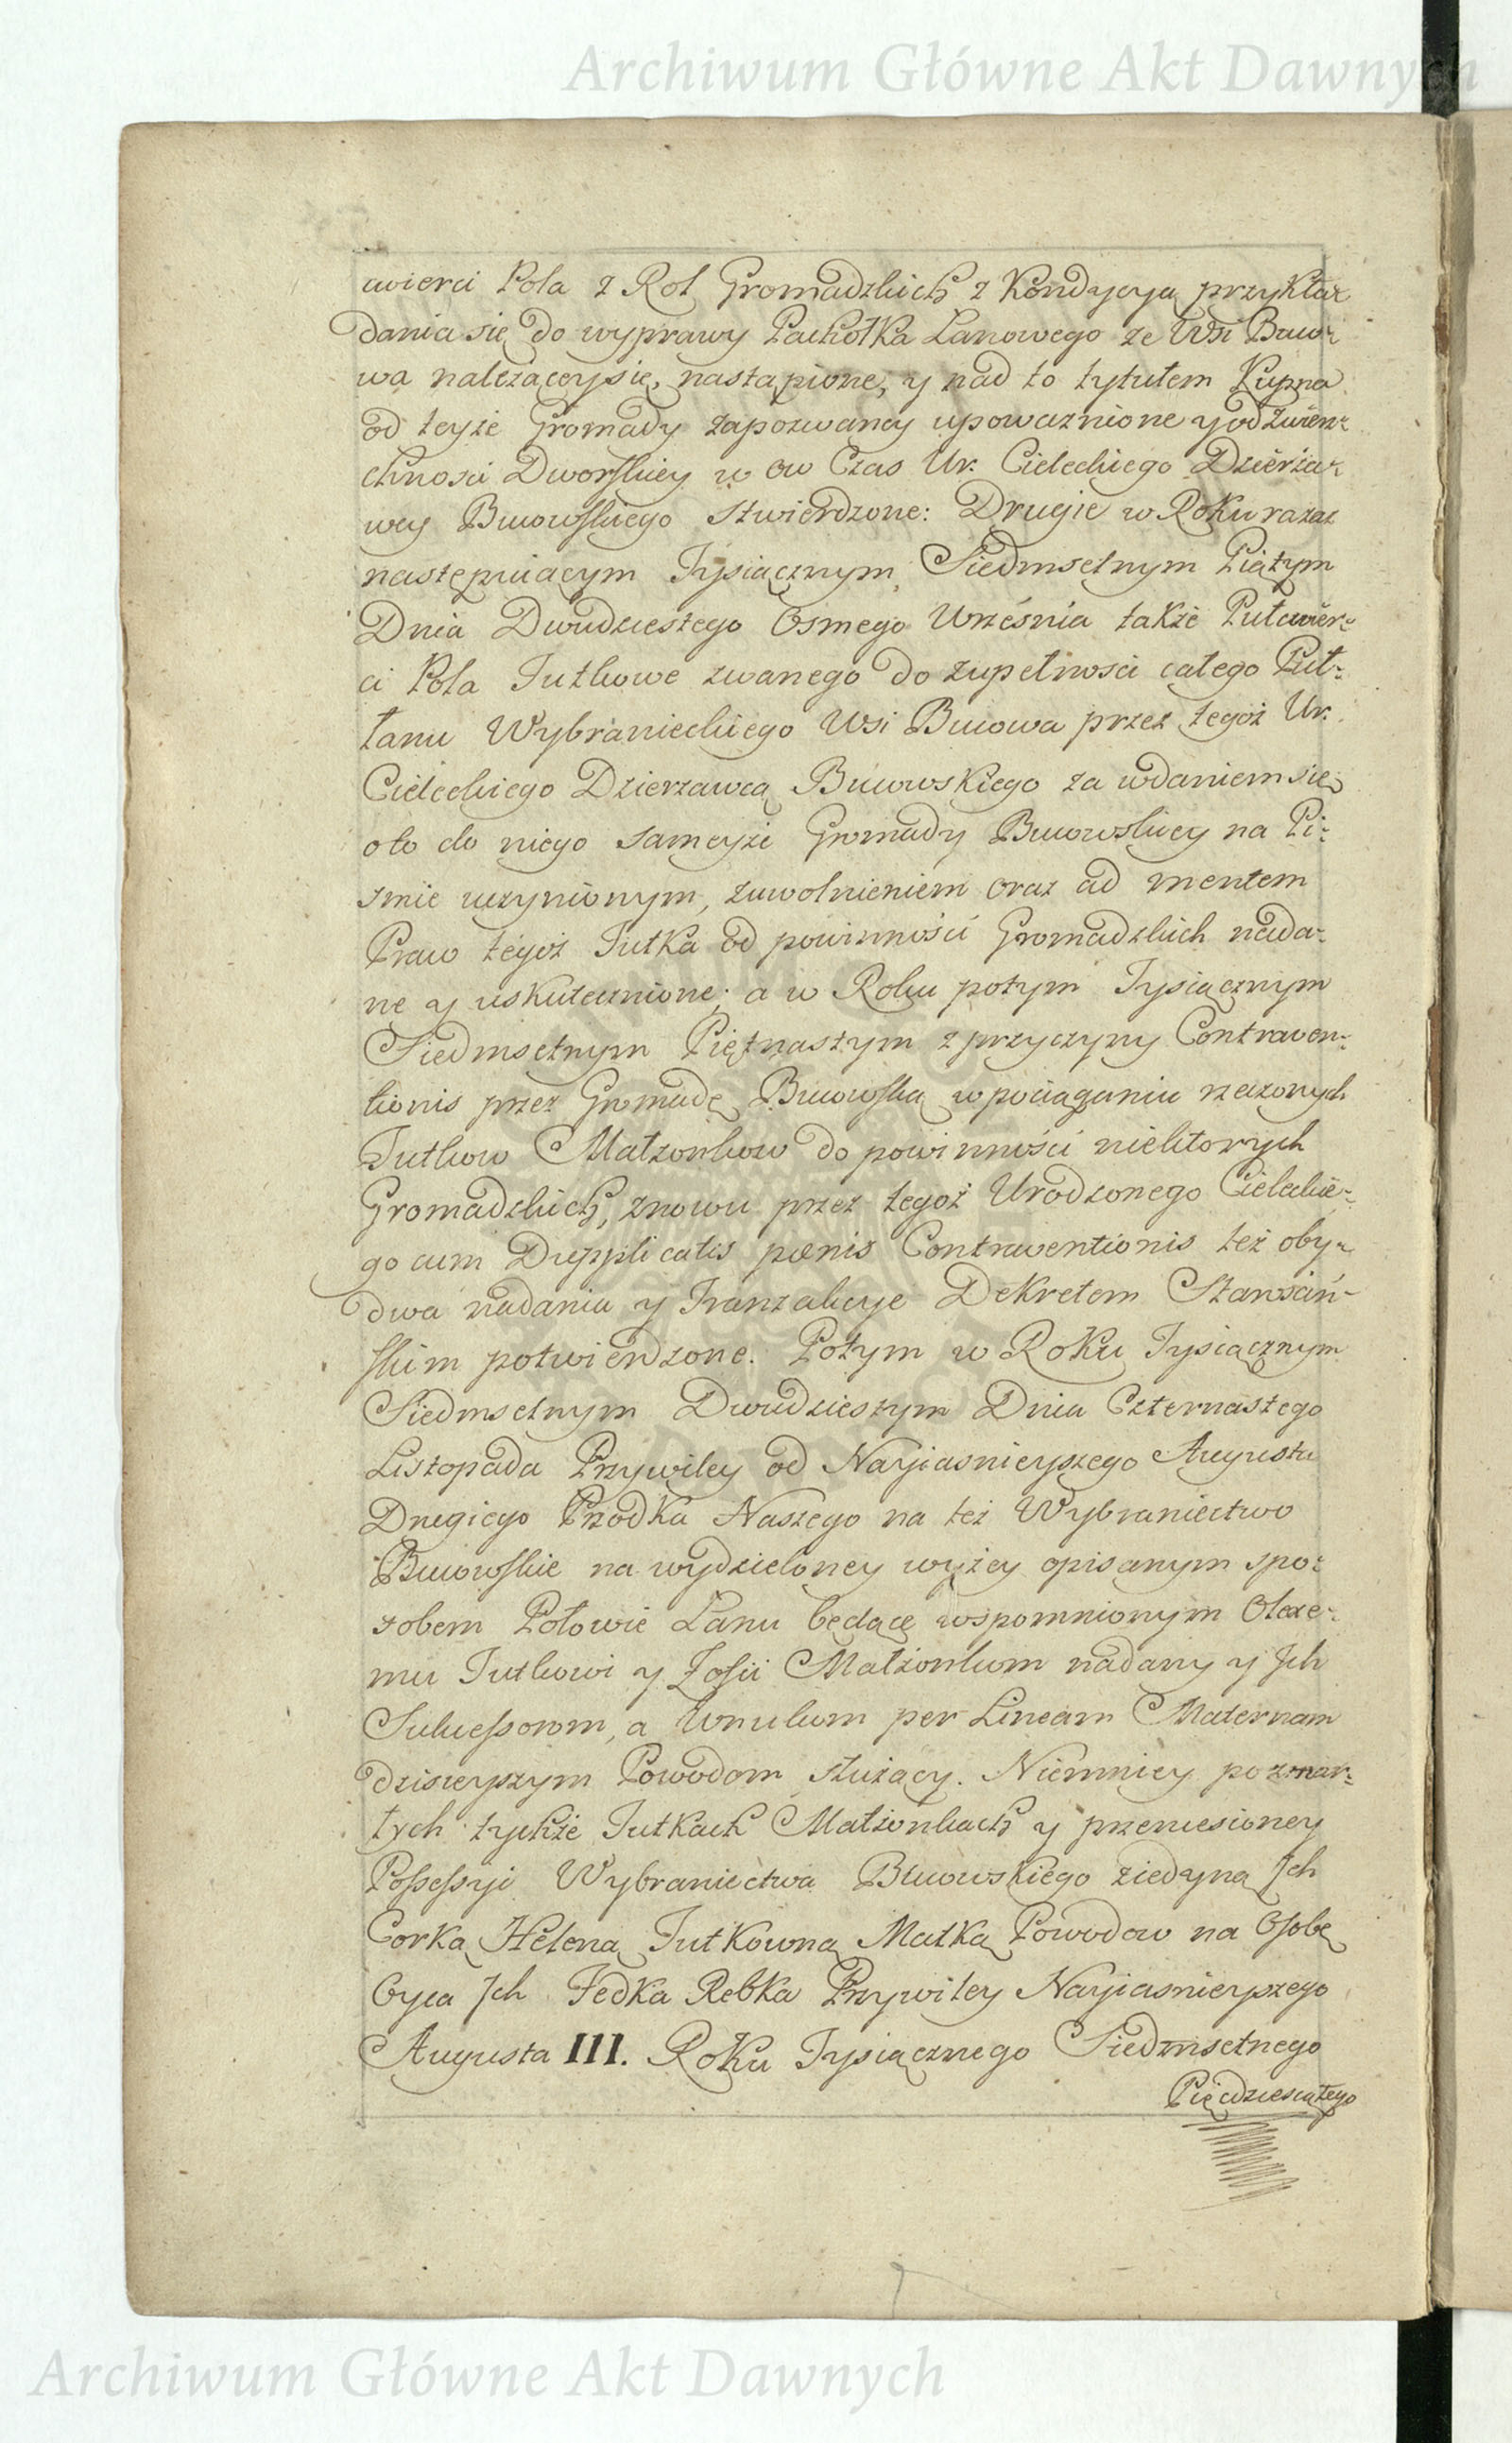 Archiwum Główne Akt Dawnych
cwierci Pola z Rol Gromadzkich z Kondycyą przykła⸗
dania się do wyprawy Pachołka Łanowego ze Wsi Buco⸗
wa należącey się, nastąpione, y nad to tytułem Kupna
od teyże Gromady zapozwaney upoważnione y od Zwierz⸗
chności Dworskiey w ow Czas Ur. Cieleckiego Dzierża⸗
wcy Bucowskiego stwierdzone: Drugie w Roku zaraz
następuiącym Tysiącznym Siedmsetnym Piątym
Dnia Dwudziestego Osmego Września także Pułcwier⸗
ci Pola Jutkowe zwanego do zupełnosci całego Puł⸗
łanu Wybranieckiego Wsi Bucowa przez tegoż Ur.
Cieleckiego Dzierzawcą Bucowskiego za wdaniem się
oto do niego sameyże Gromady Bucowskiey na Pi⸗
smie uczynionym, zuwolnieniem oraz ad mentem
Praw tegoż Jutka od powinności Gromadzkich nada⸗
ne y uskutecznione; a w Roku potym Tysiącznym
Siedmsetnym Piętnastym z przyczyny Contraven⸗
tionis przez Gromadę Bucowską w pociąganiu rzeczonych
Jutkow Małżonkow do powinności niektorych
Gromadzkich, znowu przez tegoż Urodzonego Cieleckie⸗
go cum Dupplicatis pœnis Contraventionis też oby⸗
dwa nadania y Tranzakcye Dekretem Starościń⸗
skim potwierdzone. Potym w Roku Tysiącznym
Siedmsetnym Dwudziestym Dnia Czternastego
Listopada Przywiley od Nayiasnieyszego Augusta
Drugiego Przodka Naszego na też Wybraniectwo
Bucowskie na wydzieloney wyżey opisanym spo⸗
sobem Połowie Łanu będące wspomnionym Olexe⸗
mu Jutkowi y Zofii Małżonkom nadany y Jch
Sukcessorom, a Wnukom per Lineam Maternam
dzisieyszym Powodom służący. Niemniey po zmar⸗
łych tychże Jutkach Małżonkach y przeniesioney
Possessyi Wybraniectwa Bucowskiego z iedyną Jch
Corką Heleną Jutkowną Matką Powodow na Osobę
Oyca Jch Fedka Rebka Przywiley Nayiasnieyszego
Augusta III. Roku Tysiącznego Siedmsetnego
Pięćdziesiątego
Archiwum Główne Akt Dawnych